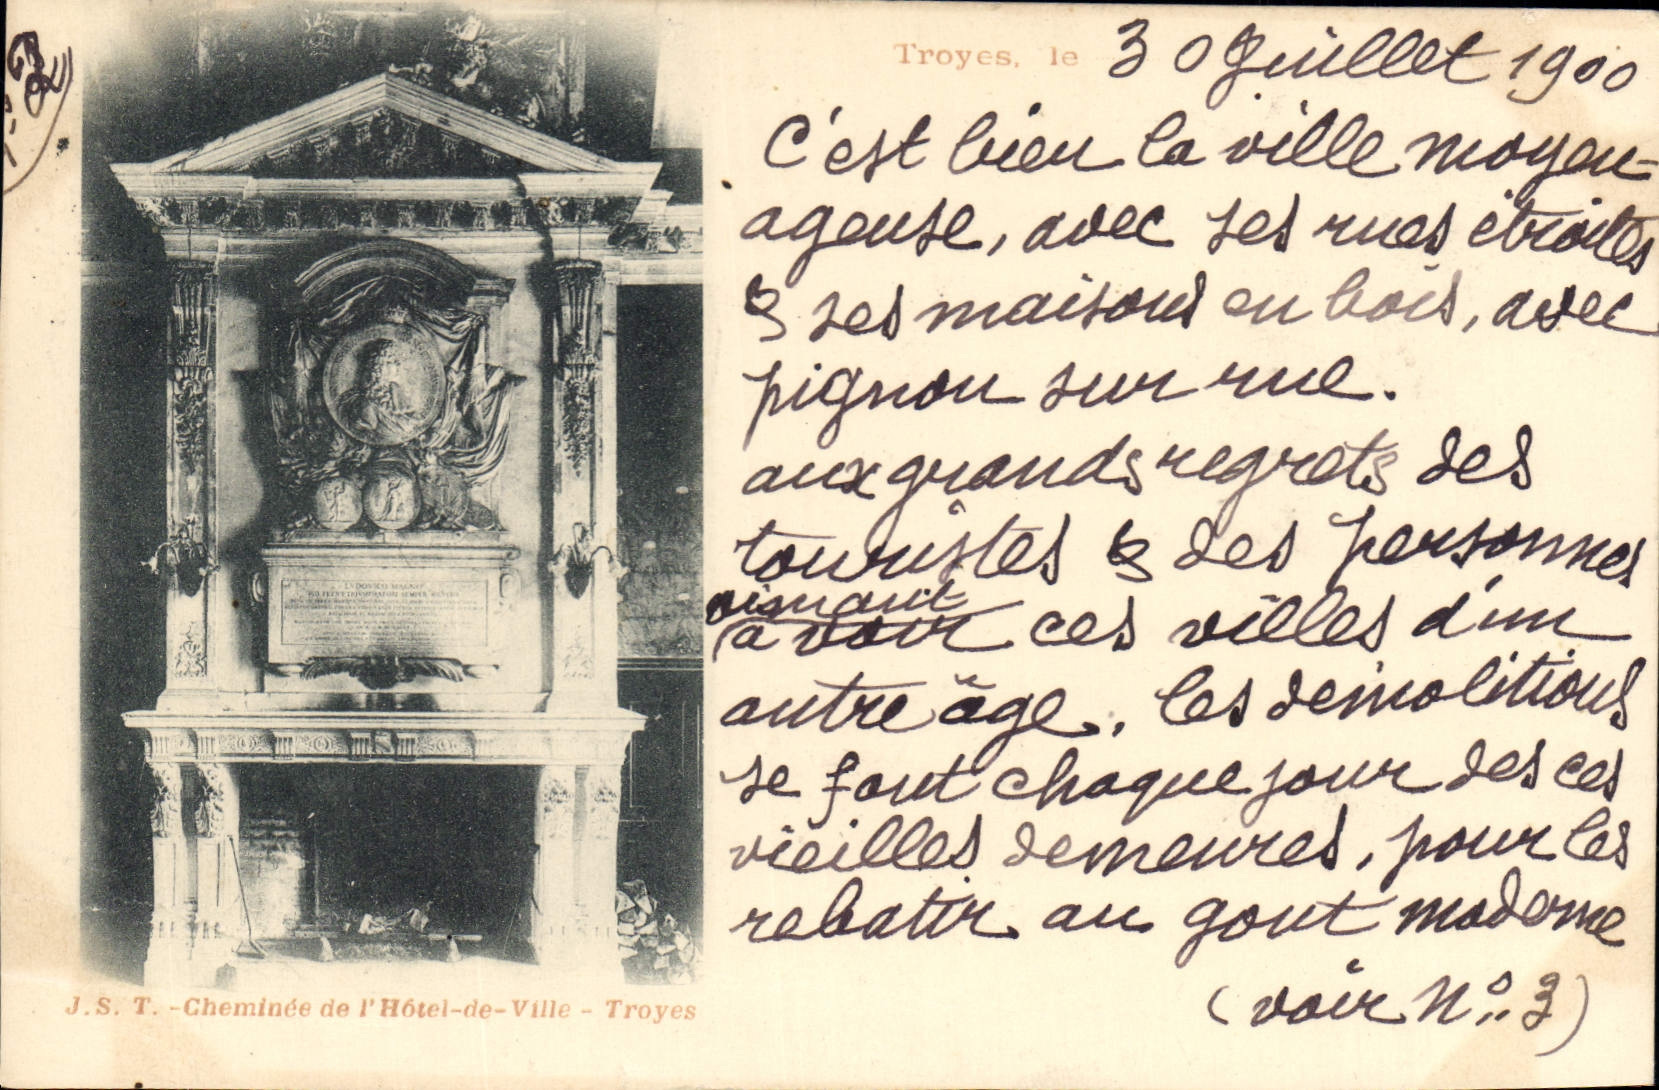 Troyes, le 30 Juillet 1900
C'est bien la ville moyen-
ageuse, avec ses rues étroites
& ses maisons en bois, avec
pignon sur rue.
aux grands regrets des
touristes & des personnes
aimant
à voir ces villes d'un
autre âge, les démolitions
se font chaque jour des ces
vieilles demeures, pour les
rebatir au gout moderne
(voir No. 3)
LUDOVICO MAGNO
J. S. T. - Cheminée de l'Hôtel-de-Ville - Troyes